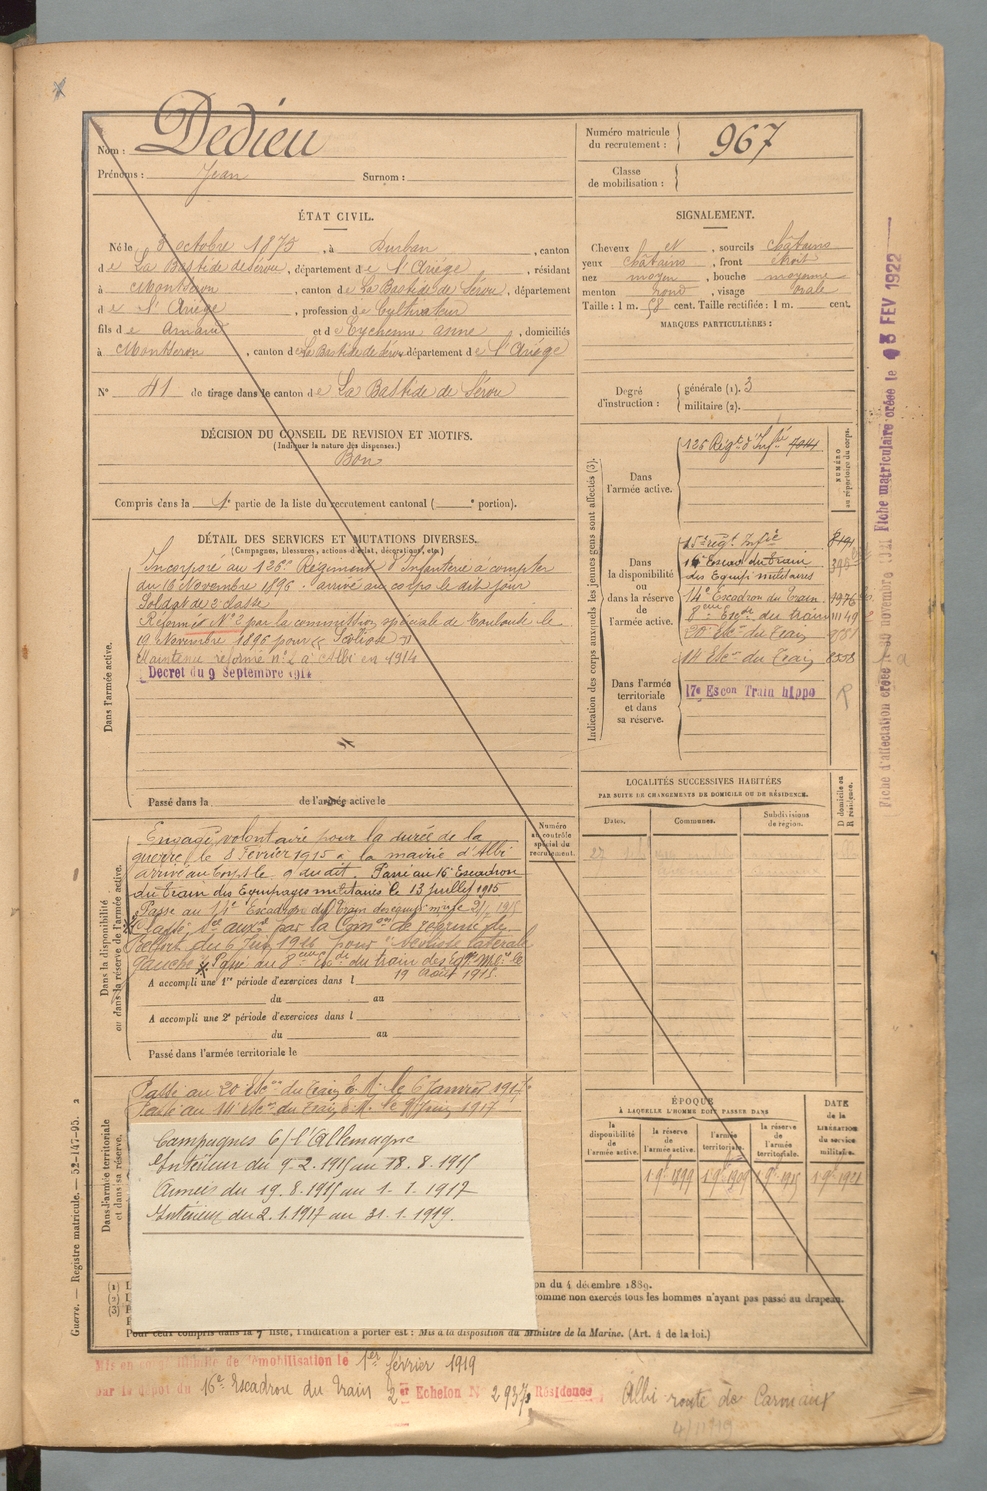 Nom : Dedieu
Prénoms : Jean Surnom :
Numéro matricule du recrutement : 967
Classe de mobilisation :
ÉTAT CIVIL.
Né le 8 octobre 1875, à Durban, canton
de La Bastide de Sérou, département de l'Ariége, résidant
à Montseron, canton de La Bastide de Sérou, département
de l'Ariége, profession de Cultivateur
fils de Arnaud et de Eychenne Anne, domiciliés
à Montseron, canton de La Bastide de Sérou département de l'Ariége
N° 41 de tirage dans le canton de La Bastide de Sérou
SIGNALEMENT.
Cheveux et, sourcils châtains
yeux châtains, front étroit
nez moyen, bouche moyenne
menton rond, visage ovale
Taille : 1 m. 58 cent. Taille rectifiée : 1 m. cent.
MARQUES PARTICULIÈRES :
Degré d'instruction : générale (1). 3
militaire (2).
DÉCISION DU CONSEIL DE REVISION ET MOTIFS.
(Indiquer la nature des dispenses.)
Bon
Compris dans la 1e partie de la liste du recrutement cantonal ( e portion).
DÉTAIL DES SERVICES ET MUTATIONS DIVERSES.
(Campagnes, blessures, actions d'éclat, décorations, etc.)
Dans l'armée active.
Incorporé au 126e Régiment d'Infanterie à compter
du 16 Novembre 1896. arrivé au corps le dit jour
Soldat de 2e classe
Réformé N° 2 par la commission spéciale de Toulouse le
19 Novembre 1896 pour "Scoliose"
Maintenu réformé n° 2 à Albi en 1914
Décret du 9 Septembre 1914
Passé dans la de l'armée active le
Indication des corps auxquels les jeunes gens sont affectés (3).
NUMÉRO au répertoire du corps.
Dans l'armée active.
126 Régt d'Infie 7014
Dans la disponibilité ou dans la réserve de l'armée active.
15e régt Infie
16e Escon du train
des Equipts militaires
14e Escadron du Train 1976
8eme Escon du train 11149
20e Escon du Train
14 Escon du Train 8558
Dans l'armée territoriale et dans sa réserve.
17e Escon Train hippo R
Fiche matriculaire créée le 13 FEV 1922
Fiche d'affectation créée le 30 novembre 1921
LOCALITÉS SUCCESSIVES HABITÉES
PAR SUITE DE CHANGEMENTS DE DOMICILE OU DE RÉSIDENCE.
Dates. Communes. Subdivisions de région. D domicile ou R résidence.
Numéro au contrôle spécial du recrutement.
Dans la disponibilité ou dans la réserve de l'armée active.
Engagé volontaire pour la durée de la
guerre le 8 Février 1915 à la mairie d'Albi
arrivé au corps le 9 dudit. Passé au 16e Escadron
du train des Equipages militaires le 13 Juillet 1915
Passé au 14e Escadron du Train des équip. mres le
Classé Sce auxre par la Comon de réforme de
Belfort du 6 Juin 1916 pour "Scoliose latérale
gauche". Passé au 8eme Escon du train des Eq. Mres le
19 août 1915.
A accompli une 1re période d'exercices dans l
du au
A accompli une 2e période d'exercices dans l
du au
Passé dans l'armée territoriale le
Dans l'armée territoriale et dans sa réserve.
Passé au 20 Escon du Train E. M. le 6 Janvier 1917
Passé au 14 Escon du Train E. M. le 9 Juin 1917
Campagnes C/ l'Allemagne
Intérieur du 9.2.1915 au 18.8.1915
Armées du 19.8.1915 au 1.1.1917
Intérieur du 2.1.1917 au 31.1.1919.
ÉPOQUE
À LAQUELLE L'HOMME DOIT PASSER DANS
la disponibilité de l'armée active.
la réserve de l'armée active.
l'armée territoriale.
la réserve de l'armée territoriale.
DATE de la LIBÉRATION du service militaire.
1 9e 1899 1 9e 1909 1 9e 1915 1 9e 1921
on du 4 décembre 1889.
comme non exercés tous les hommes n'ayant pas passé au drapeau.
Pour ceux compris dans la 7e liste, l'indication à porter est : Mis à la disposition du Ministre de la Marine. (Art. 4 de la loi.)
Guerre. — Registre matricule. — 52-147-95. 2
Mis en congé illimité de démobilisation le 1er février 1919
par le dépôt du 16e Escadron du Train 2er Echelon N° 2937 Résidence Albi route de Carmaux